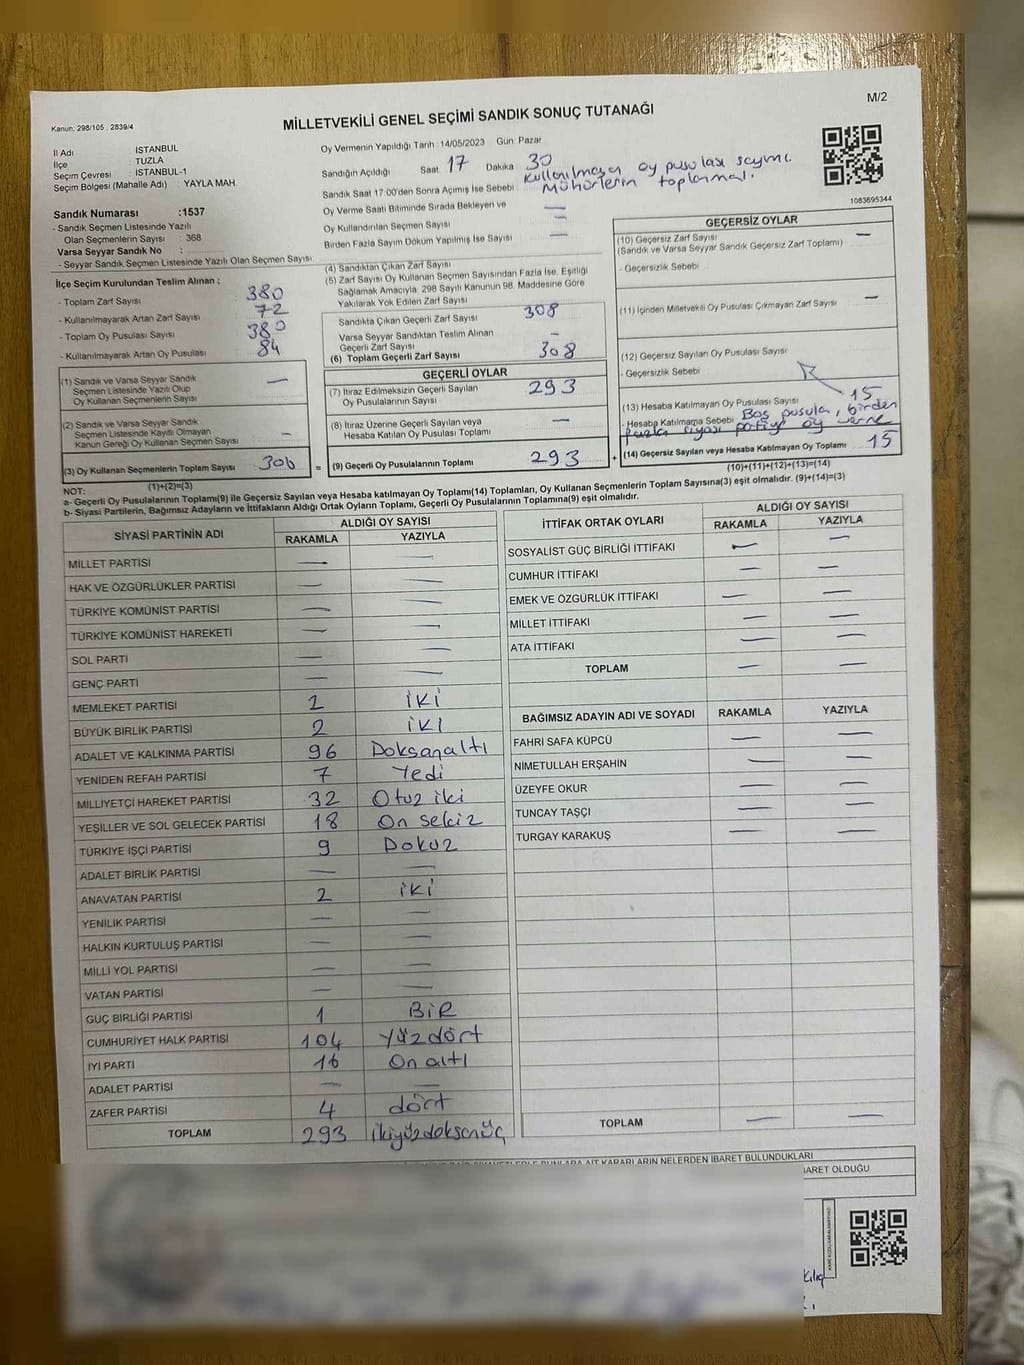 M/2
Kanun: 298/105 2839/4
MİLLETVEKİLİ GENEL SEÇİMİ SANDIK SONUÇ TUTANAĞI
İl Adı : İSTANBUL
İlçe : TUZLA
Seçim Çevresi : İSTANBUL-1
Seçim Bölgesi (Mahalle Adı) : YAYLA MAH
Sandık Numarası :1537
- Sandık Seçmen Listesinde Yazılı
Olan Seçmenlerin Sayısı : 368
Varsa Seyyar Sandık No :
- Seyyar Sandık Seçmen Listesinde Yazılı Olan Seçmen Sayısı :
Oy Vermenin Yapıldığı Tarih : 14/05/2023 Gün: Pazar
Sandığın Açıldığı Saat 17 Dakika 30
Kullanılmayan oy pusulası sayımı.
Sandık Saat 17:00'den Sonra Açımış İse Sebebi : Mühürlerin toplanması.
Oy Verme Saati Bitiminde Sırada Bekleyen ve —
Oy Kullandırılan Seçmen Sayısı —
Birden Fazla Sayım Döküm Yapılmış İse Sayısı —
1083695344
İlçe Seçim Kurulundan Teslim Alınan ;
- Toplam Zarf Sayısı 380
- Kullanılmayarak Artan Zarf Sayısı 72
- Toplam Oy Pusulası Sayısı 380
- Kullanılmayarak Artan Oy Pusulası 84
(1) Sandık ve Varsa Seyyar Sandık —
Seçmen Listesinde Yazılı Olup
Oy Kullanan Seçmenlerin Sayısı
(2) Sandık ve Varsa Seyyar Sandık
Seçmen Listesinde Kayıtlı Olmayan —
Kanun Gereği Oy Kullanan Seçmen Sayısı
(3) Oy Kullanan Seçmenlerin Toplam Sayısı 308
(1)+(2)=(3)
(4) Sandıktan Çıkan Zarf Sayısı
(5) Zarf Sayısı Oy Kullanan Seçmen Sayısından Fazla İse, Eşitliği
Sağlamak Amacıyla; 298 Sayılı Kanunun 98. Maddesine Göre
Yakılarak Yok Edilen Zarf Sayısı
Sandıkta Çıkan Geçerli Zarf Sayısı 308
Varsa Seyyar Sandıktan Teslim Alınan —
Geçerli Zarf Sayısı
(6) Toplam Geçerli Zarf Sayısı 308
GEÇERLİ OYLAR
(7) İtiraz Edilmeksizin Geçerli Sayılan 293
Oy Pusulalarının Sayısı
(8) İtiraz Üzerine Geçerli Sayılan veya —
Hesaba Katılan Oy Pusulası Toplamı
= (9) Geçerli Oy Pusulalarının Toplamı 293 +
GEÇERSİZ OYLAR
(10) Geçersiz Zarf Sayısı —
(Sandık ve Varsa Seyyar Sandık Geçersiz Zarf Toplamı)
- Geçersizlik Sebebi
(11) İçinden Milletvekili Oy Pusulası Çıkmayan Zarf Sayısı —
(12) Geçersiz Sayılan Oy Pusulası Sayısı
- Geçersizlik Sebebi
(13) Hesaba Katılmayan Oy Pusulası Sayısı 15
- Hesaba Katılmama Sebebi Boş pusula, birden
fazla siyasi partiye oy verme
(14) Geçersiz Sayılan veya Hesaba Katılmayan Oy Toplamı 15
(10)+(11)+(12)+(13)=(14)
NOT:
a- Geçerli Oy Pusulalarının Toplamı(9) ile Geçersiz Sayılan veya Hesaba katılmayan Oy Toplamı(14) Toplamları, Oy Kullanan Seçmenlerin Toplam Sayısına(3) eşit olmalıdır. (9)+(14)=(3)
b- Siyasi Partilerin, Bağımsız Adayların ve İttifakların Aldığı Ortak Oyların Toplamı, Geçerli Oy Pusulalarının Toplamına(9) eşit olmalıdır.
SİYASİ PARTİNİN ADI ALDIĞI OY SAYISI
RAKAMLA YAZIYLA
MİLLET PARTİSİ — —
HAK VE ÖZGÜRLÜKLER PARTİSİ — —
TÜRKİYE KOMÜNİST PARTİSİ — —
TÜRKİYE KOMÜNİST HAREKETİ — —
SOL PARTİ — —
GENÇ PARTİ — —
MEMLEKET PARTİSİ 2 İKİ
BÜYÜK BİRLİK PARTİSİ 2 İKİ
ADALET VE KALKINMA PARTİSİ 96 Doksanaltı
YENİDEN REFAH PARTİSİ 7 Yedi
MİLLİYETÇİ HAREKET PARTİSİ 32 Otuz iki
YEŞİLLER VE SOL GELECEK PARTİSİ 18 On sekiz
TÜRKİYE İŞÇİ PARTİSİ 9 Dokuz
ADALET BİRLİK PARTİSİ — —
ANAVATAN PARTİSİ 2 İKİ
YENİLİK PARTİSİ — —
HALKIN KURTULUŞ PARTİSİ — —
MİLLİ YOL PARTİSİ — —
VATAN PARTİSİ — —
GÜÇ BİRLİĞİ PARTİSİ 1 BİR
CUMHURİYET HALK PARTİSİ 104 Yüzdört
İYİ PARTİ 16 On altı
ADALET PARTİSİ — —
ZAFER PARTİSİ 4 dört
TOPLAM 293 ikiyüzdoksanüç
İTTİFAK ORTAK OYLARI ALDIĞI OY SAYISI
RAKAMLA YAZIYLA
SOSYALİST GÜÇ BİRLİĞİ İTTİFAKI — —
CUMHUR İTTİFAKI — —
EMEK VE ÖZGÜRLÜK İTTİFAKI — —
MİLLET İTTİFAKI — —
ATA İTTİFAKI — —
TOPLAM — —
BAĞIMSIZ ADAYIN ADI VE SOYADI RAKAMLA YAZIYLA
FAHRİ SAFA KÜPCÜ — —
NİMETULLAH ERŞAHİN — —
ÜZEYFE OKUR — —
TUNCAY TAŞÇI — —
TURGAY KARAKUŞ — —
TOPLAM — —
BUNLARA AİT KARARLARIN NELERDEN İBARET BULUNDUKLARI
BARET OLDUĞU
Kılıç